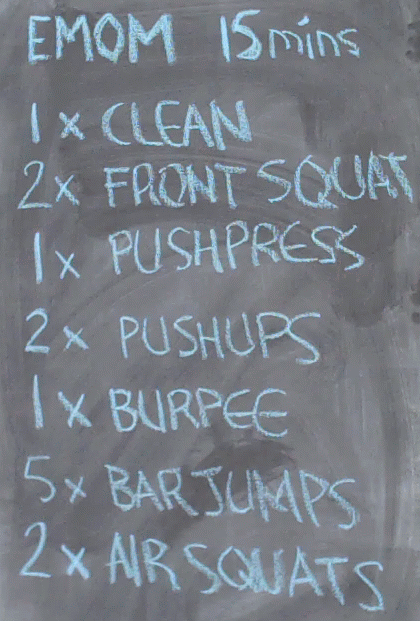 EMOM 15mins
1 x CLEAN
2x FRONT SQUAT
1x PUSHPRESS
2x PUSHUPS
1x BURPEE
5x BAR JUMPS
2x AIR SQUATS